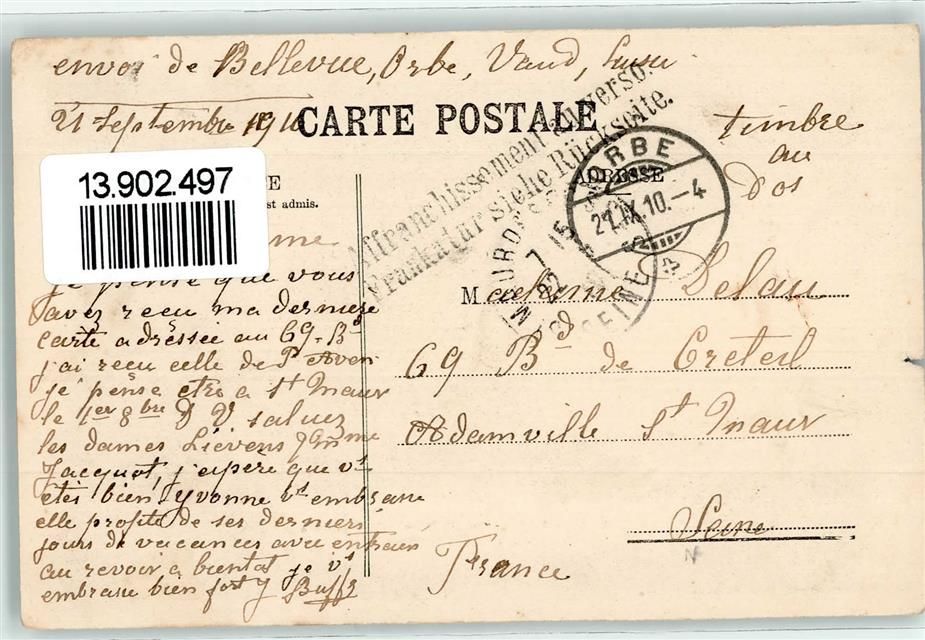 envoi de Bellevue, Orbe, Vaud,
21 septembre 1910
CARTE POSTALE
timbre
au
Dos
Affranchissement au verso.
Frankatur siehe Rückseite.
ORBE
21.IX.10.–4
ADRESSE
13.902.497
E
st admis.
me
je pense que vous
avez reçu ma dernière
carte adressée au 69. Bd
j'ai reçu celle de P Aven
je pense être à St Maur
le 1er 8bre D V saluez
les dames Lievens &
Jacquot, j'espère que vs
êtes bien, Yvonne vs embrasse
elle profite de ses derniers
jours de vacances avec entrain
au revoir à bientôt je vs
embrasse bien fort J Buffe
Madame Delau
69 Bd de Créteil
Adamville St Maur
Seine
France